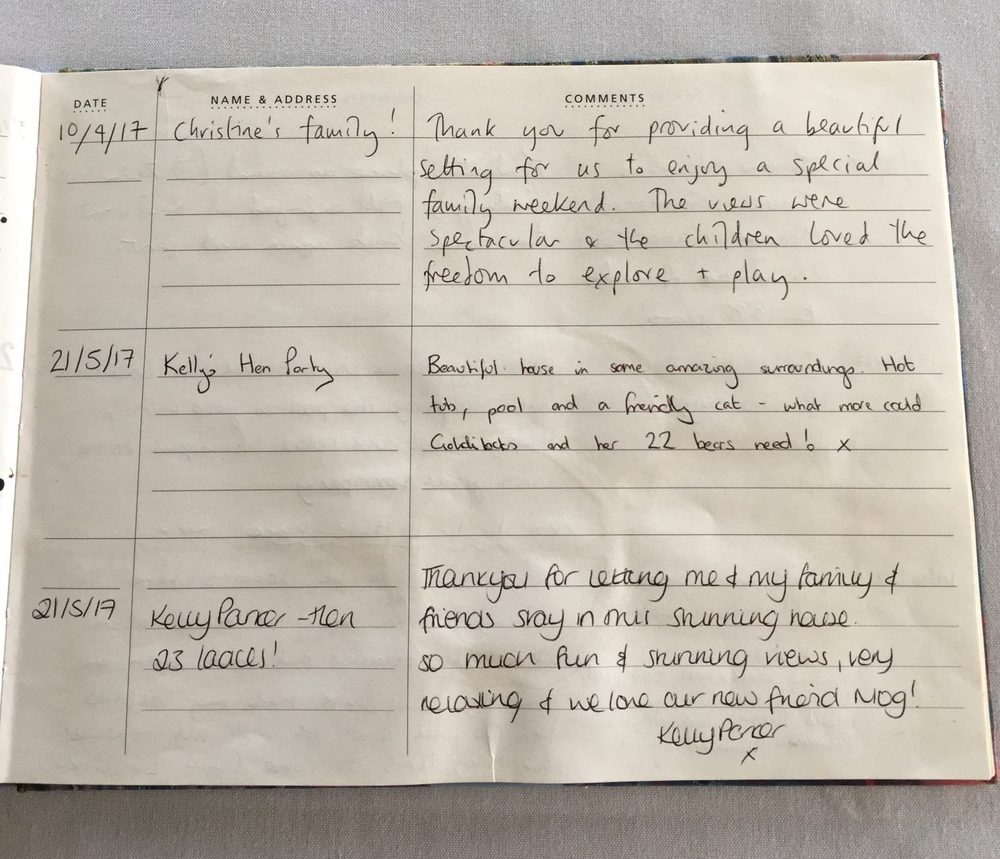 DATE NAME & ADDRESS COMMENTS
10/4/17 Christine's family! Thank you for providing a beautiful
setting for us to enjoy a special
family weekend. The views were
spectacular & the children loved the
freedom to explore + play.
21/5/17 Kelly's Hen Party Beautiful house in some amazing surroundings. Hot
tub, pool and a friendly cat - what more could
Goldilocks and her 22 bears need! x
Thankyou for letting me & my family &
21/5/17 Kelly Parker - Hen friends stay in this stunning house.
23 laaces! so much fun & stunning views, very
relaxing & we love our new friend Mog!
Kelly Parker
x